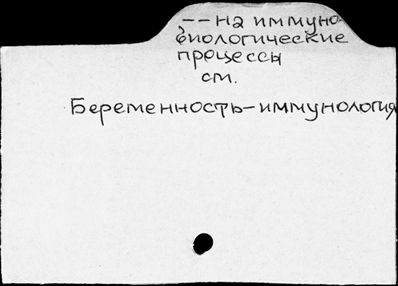 -- на иммуно-
биологические
процессы
см.
Беременность-иммунология